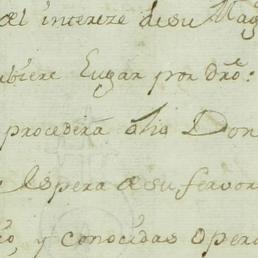 al intereze de su Mag
ubiere Lugar por dro:
procederá
Don
espera de su fervor
y conocidas opera